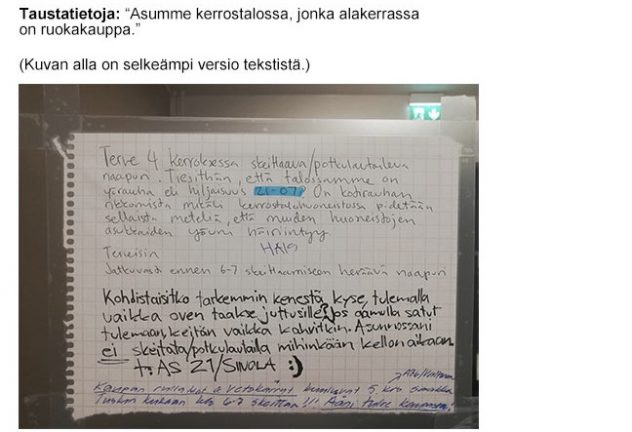 Taustatietoja: “Asumme kerrostalossa, jonka alakerrassa
on ruokakauppa.”
(Kuvan alla on selkeämpi versio tekstistä.)
Terve 4 kerroksessa skeittaava/potkulautaileva
naapuri. Tiesithän, että talossamme on
yörauha eli hiljaisuus 21-07? On kotirauhan
rikkomista mikäli kerrostalohuoneistossa pidetään
sellaista meteliä, että muiden huoneistojen
asukkaiden yöuni häiriintyy
Terveisin
Jatkuvasti ennen 6-7 skeittaamiseen heräävä naapuri
Kohdistaisitko tarkemmin kenestä kyse, tulemalla
vaikka oven taakse juttusille? Jos aamulla satut
tulemaan, keitän vaikka kahvitkin. Asunnossani
ei skeitata/potkulautailla mihinkään kellonaikaan
t. AS 21/SINULA :)
Kaupan rullakot & vetokärryt kuuluvat 5 krs saakka
Tuskin kukaan klo 6-7 skeittaa!!! Ääni tulee kaupasta.